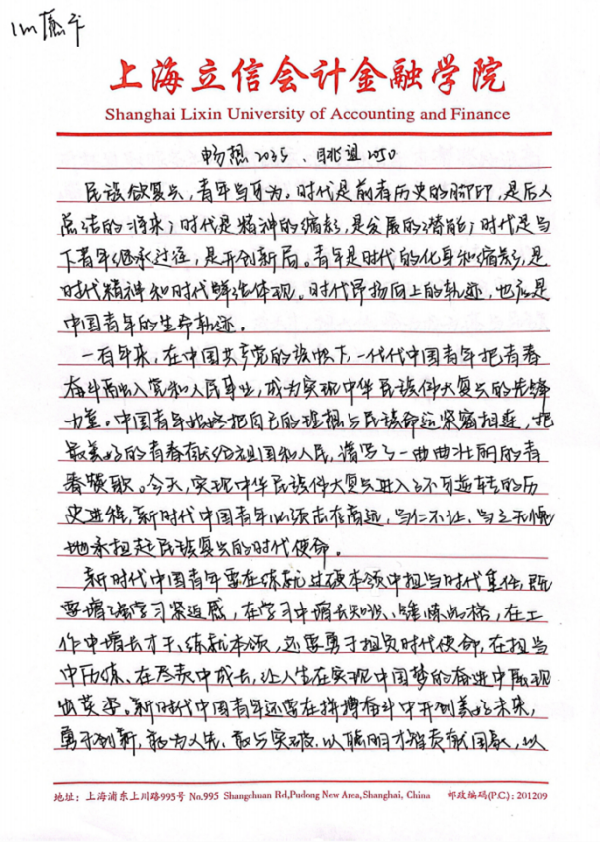 上海立信会计金融学院
Shanghai Lixin University of Accounting and Finance
畅想2035、眺望2050
民族欲复兴，青年当有为。时代是前者历史的脚印，是后人
总结的将来；时代是精神的缩影，是发展的潜能；时代是当
下青年继承过往，是开创新局。青年是时代的化身和缩影，是
时代精神和时代鲜活体现。时代昂扬向上的轨迹，也应是
中国青年的生命轨迹。
一百年来，在中国共产党的旗帜下，一代代中国青年把青春
奋斗融入党和人民事业，成为实现中华民族伟大复兴的先锋
力量。中国青年始终把自己的理想与民族命运紧密相连，把
最美好的青春献给祖国和人民，谱写了一曲曲壮丽的青
春赞歌。今天，实现中华民族伟大复兴进入了不可逆转的历
史进程，新时代中国青年必须志存高远，当仁不让、当之无愧
地承担起民族复兴的时代使命。
新时代中国青年要在练就过硬本领中担当时代重任，既
要增强学习紧迫感，在学习中增长知识、锤炼品格，在工
作中增长才干、练就本领，还要勇于担负时代使命，在担当
中历练、在尽责中成长，让人生在实现中国梦的奋进中展现
出英姿。新时代中国青年还要在拼搏奋斗中开创美好未来，
勇于创新，敢为人先、敢与突破，以聪明才智贡献国家，以
地址：上海浦东上川路995号 No.995 Shangchuan Rd,Pudong New Area,Shanghai, China 邮政编码(P.C.): 201209